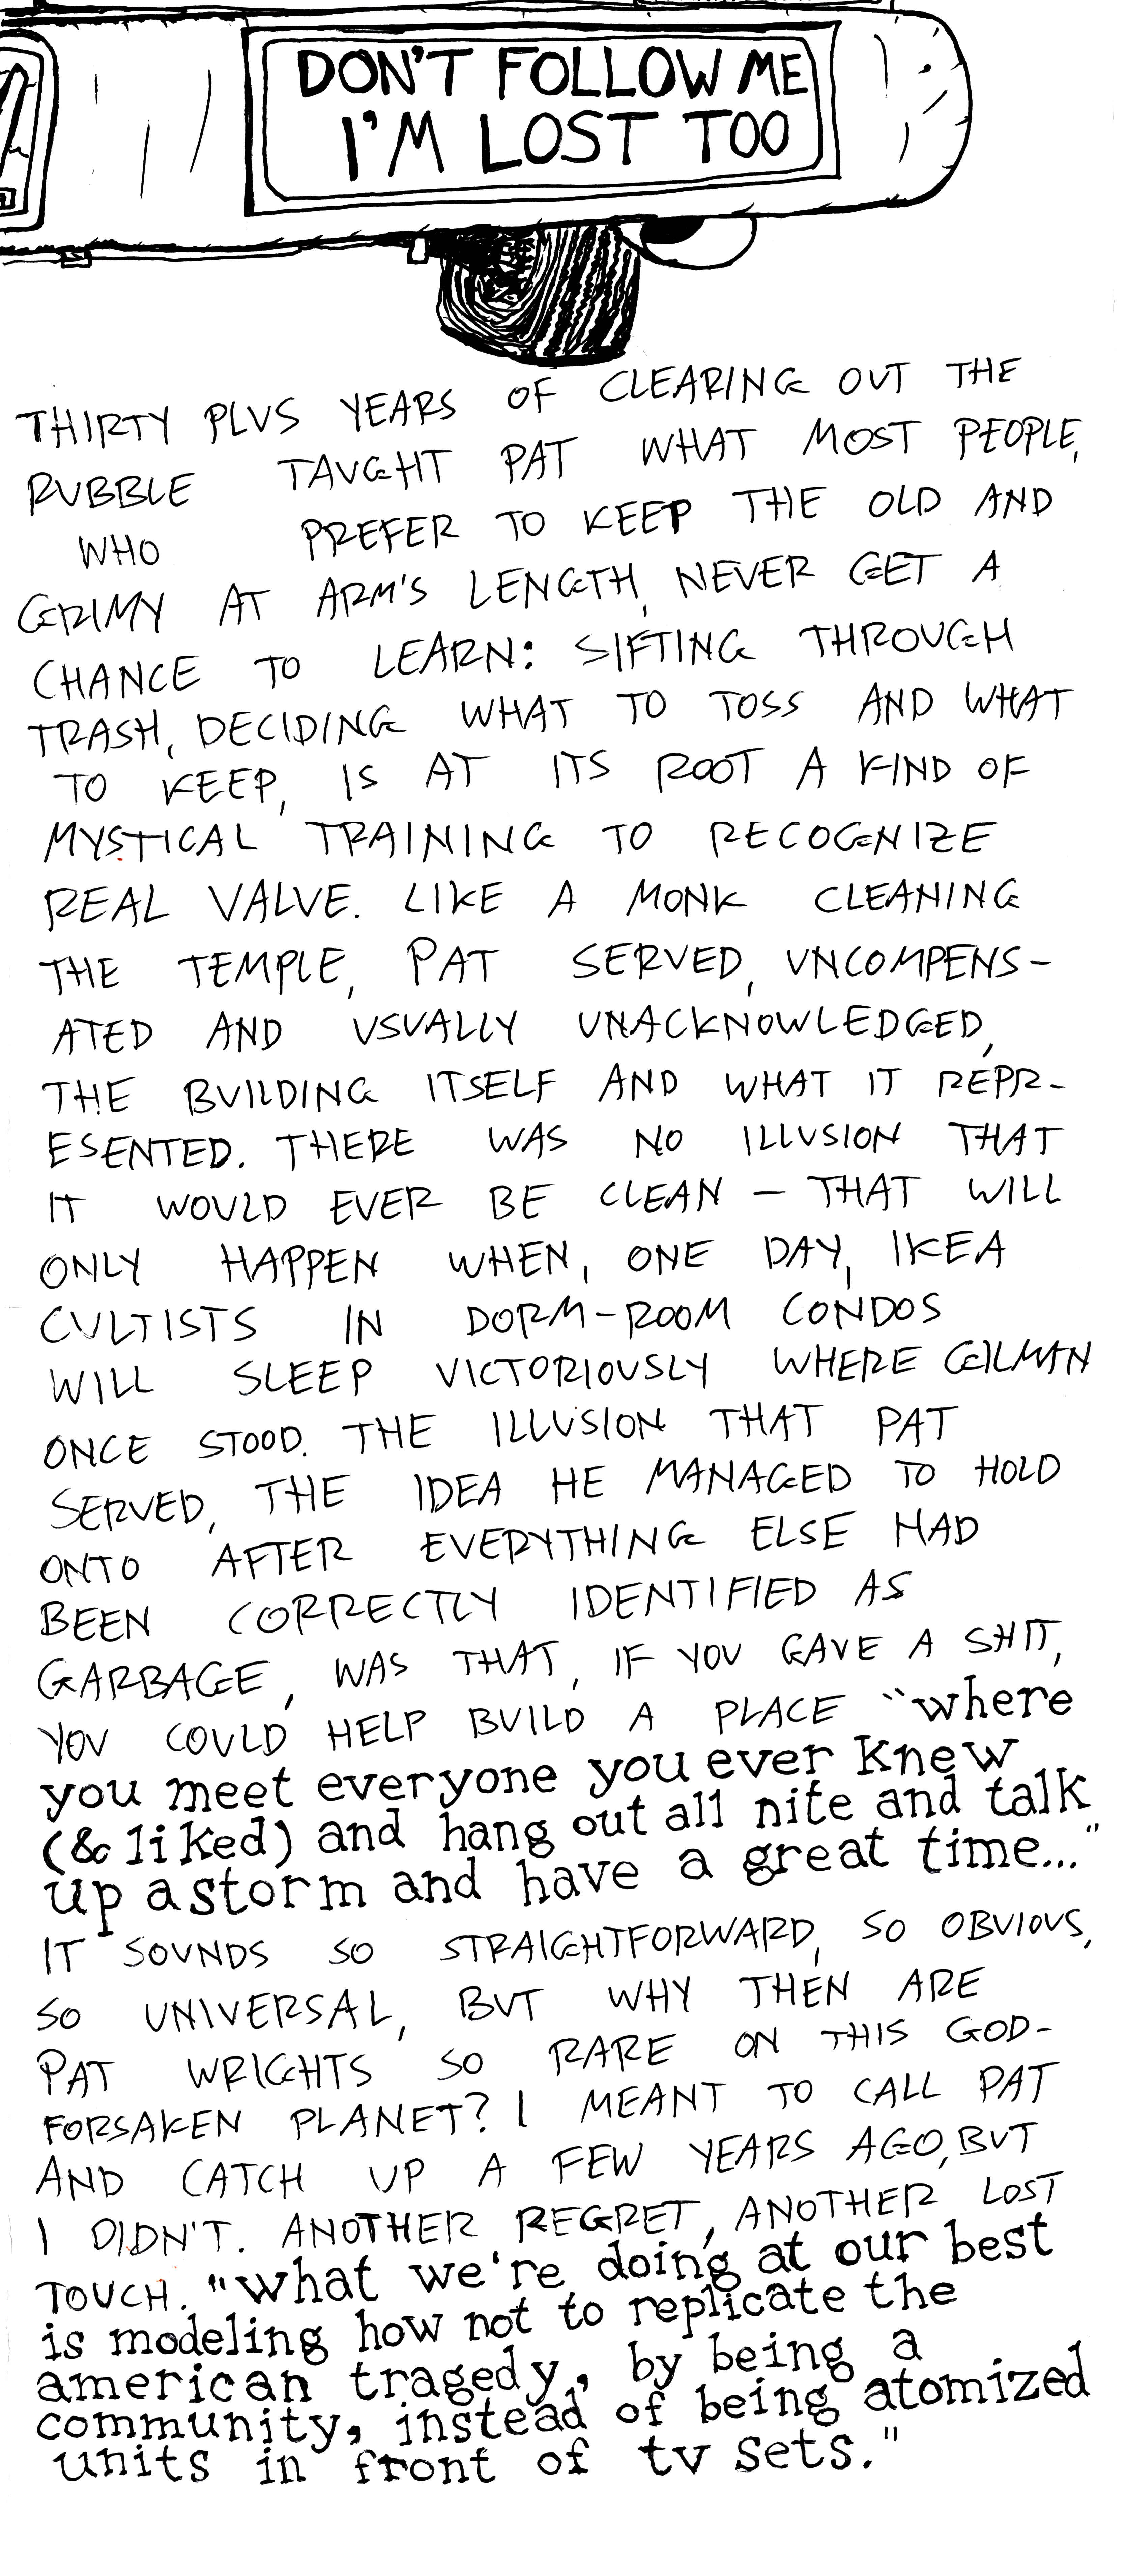 DON'T FOLLOW ME
I'M LOST TOO
THIRTY PLUS YEARS OF CLEARING OUT THE
RUBBLE TAUGHT PAT WHAT MOST PEOPLE,
WHO PREFER TO KEEP THE OLD AND
GRIMY AT ARM'S LENGTH, NEVER GET A
CHANCE TO LEARN: SIFTING THROUGH
TRASH, DECIDING WHAT TO TOSS AND WHAT
TO KEEP, IS AT ITS ROOT A KIND OF
MYSTICAL TRAINING TO RECOGNIZE
REAL VALUE. LIKE A MONK CLEANING
THE TEMPLE, PAT SERVED, UNCOMPENS-
ATED AND USUALLY UNACKNOWLEDGED,
THE BUILDING ITSELF AND WHAT IT REPR-
ESENTED. THERE WAS NO ILLUSION THAT
IT WOULD EVER BE CLEAN – THAT WILL
ONLY HAPPEN WHEN, ONE DAY, IKEA
CULTISTS IN DORM-ROOM CONDOS
WILL SLEEP VICTORIOUSLY WHERE GILMAN
ONCE STOOD. THE ILLUSION THAT PAT
SERVED, THE IDEA HE MANAGED TO HOLD
ONTO AFTER EVERYTHING ELSE HAD
BEEN CORRECTLY IDENTIFIED AS
GARBAGE, WAS THAT, IF YOU GAVE A SHIT,
YOU COULD HELP BUILD A PLACE "where
you meet everyone you ever knew
(& liked) and hang out all nite and talk
up a storm and have a great time..."
IT SOUNDS SO STRAIGHTFORWARD, SO OBVIOUS,
SO UNIVERSAL, BUT WHY THEN ARE
PAT WRIGHTS SO RARE ON THIS GOD-
FORSAKEN PLANET? I MEANT TO CALL PAT
AND CATCH UP A FEW YEARS AGO, BUT
I DIDN'T. ANOTHER REGRET, ANOTHER LOST
TOUCH. "what we're doing at our best
is modeling how not to replicate the
american tragedy, by being a
community, instead of being atomized
units in front of tv sets."